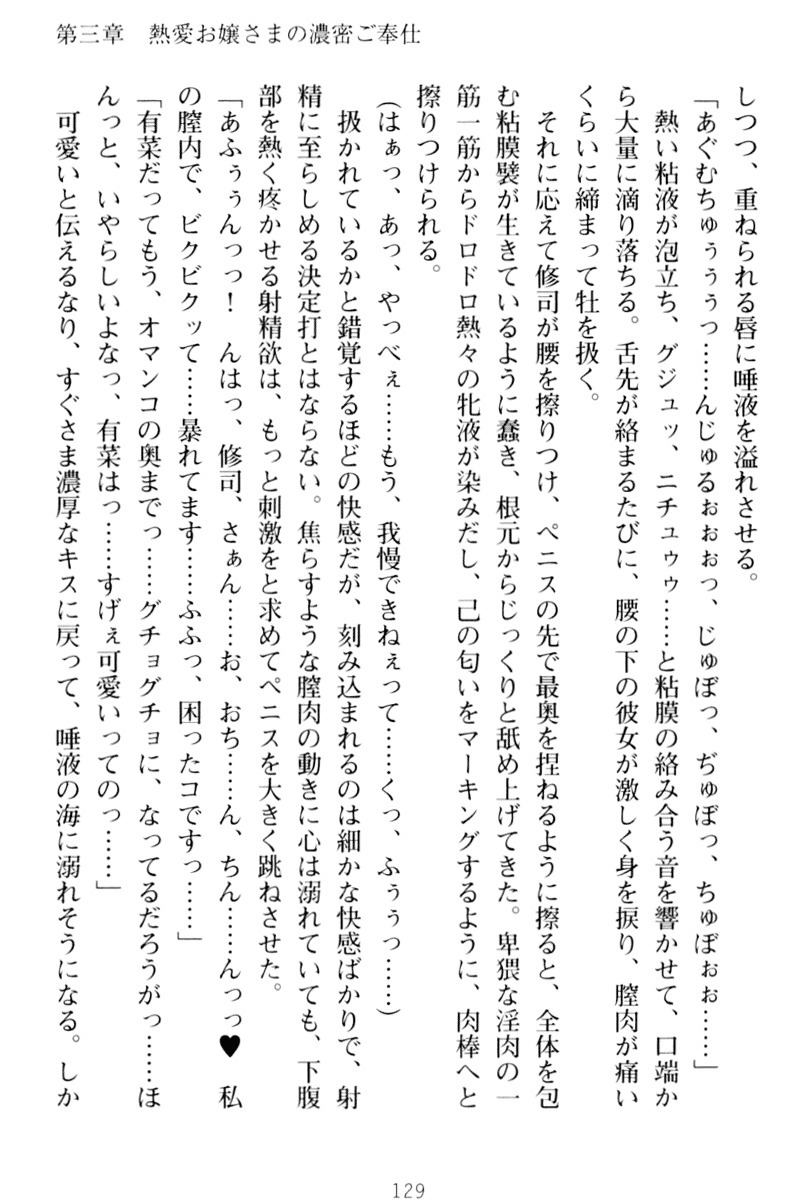 第三章　熱愛お嬢さまの濃密ご奉仕
しつつ、重ねられる唇に唾液を溢れさせる。
「あぐむちゅぅぅぅっ……んじゅるぉぉぉっ、じゅぼっ、ぢゅぼっ、ちゅぼぉぉ……」
　熱い粘液が泡立ち、グジュッ、ニチュゥゥ……と粘膜の絡み合う音を響かせて、口端か
ら大量に滴り落ちる。舌先が絡まるたびに、腰の下の彼女が激しく身を捩り、膣肉が痛い
くらいに締まって牡を扱く。
　それに応えて修司が腰を擦りつけ、ペニスの先で最奥を捏ねるように擦ると、全体を包
む粘膜襞が生きているように蠢き、根元からじっくりと舐め上げてきた。卑猥な淫肉の一
筋一筋からドロドロ熱々の牝液が染みだし、己の匂いをマーキングするように、肉棒へと
擦りつけられる。
（はぁっ、あっ、やっべぇ……もう、我慢できねぇって……くっ、ふぅぅっ……）
　扱かれているかと錯覚するほどの快感だが、刻み込まれるのは細かな快感ばかりで、射
精に至らしめる決定打とはならない。焦らすような膣肉の動きに心は溺れていても、下腹
部を熱く疼かせる射精欲は、もっと刺激をと求めてペニスを大きく跳ねさせた。
「あふぅぅんっっ！　んはっ、修司、さぁん……お、おち……ん、ちん……んっっ♥　私
の膣内で、ビクビクッて……暴れてます……ふふっ、困ったコですっ……」
「有菜だってもう、オマンコの奥までっ……グチョグチョに、なってるだろうがっ……ほ
んっと、いやらしいよなっ、有菜はっ……すげぇ可愛いってのっ……」
　可愛いと伝えるなり、すぐさま濃厚なキスに戻って、唾液の海に溺れそうになる。しか
129